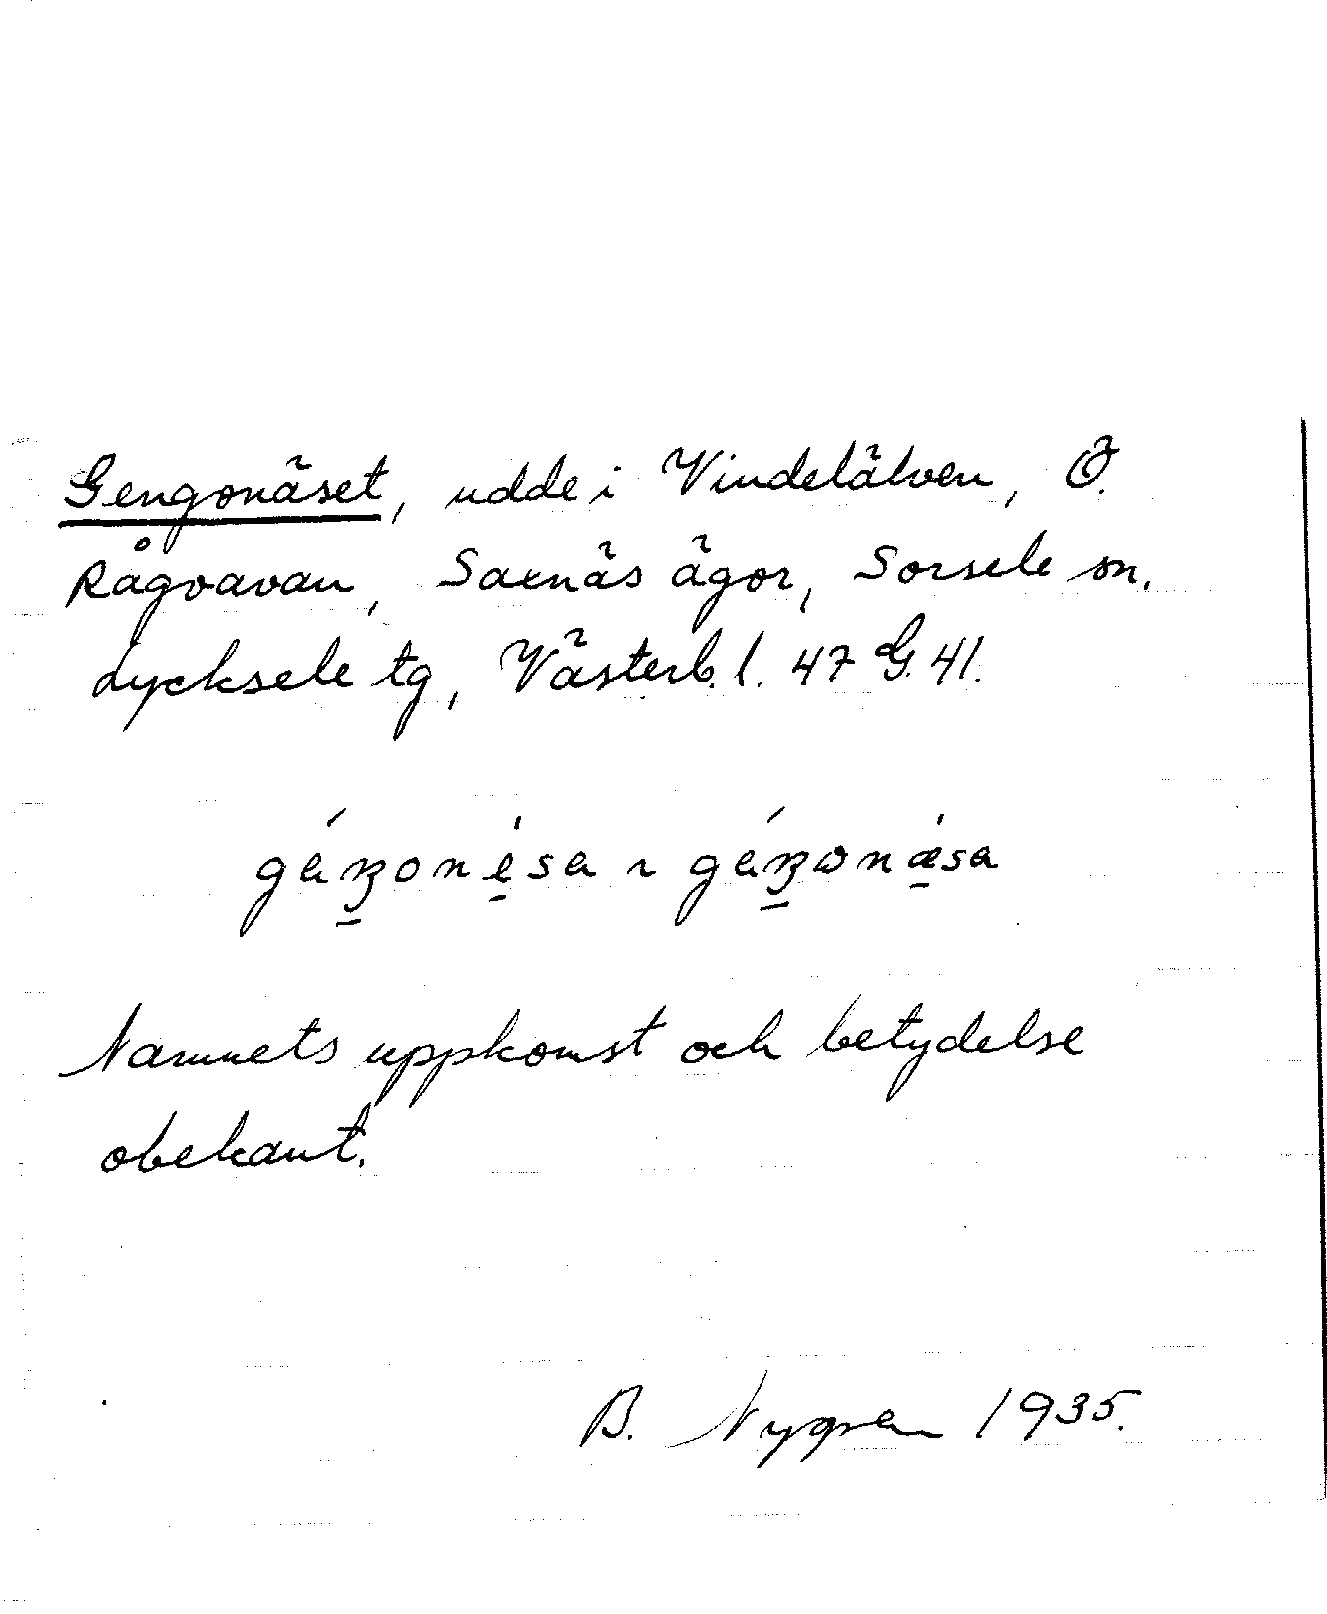 Gengonäset, udde i Vindelälven, Ö.
Rågvavan, Saxnäs ägor, Sorsele sn.
Lycksele tg, Västerb. l. 47 G. 41.
Namnets uppkomst och betydelse
obekant.
B. Nygren 1935.